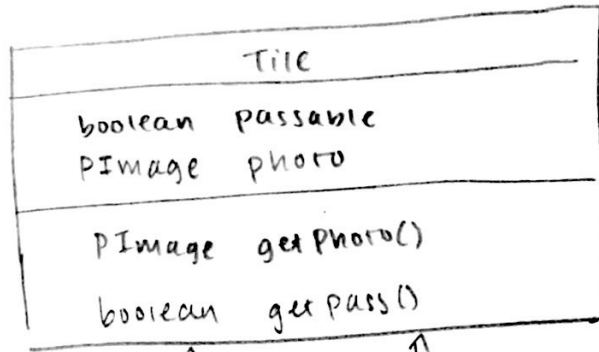 Tile
boolean passable
PImage photo
PImage getPhoto()
boolean getPass()